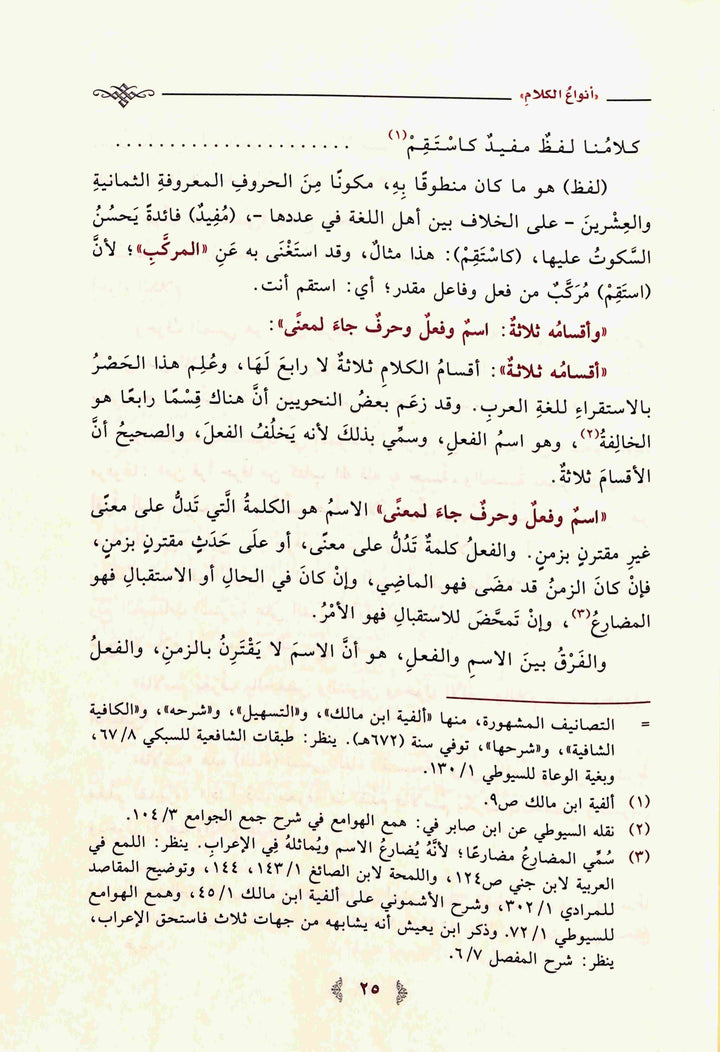 «أنواعُ الكلامِ»
كلامُنا لفظٌ مفيدٌ كاسْتَقِمْ(١) . . . . . . . . . . . . . . . . . . . . . .
(لفظ) هو ما كان منطوقًا بِهِ، مكونًا مِنَ الحروفِ المعروفةِ الثمانيةِ
والعِشْرينَ – على الخلاف بين أهل اللغة في عددها –، (مُفِيدٌ) فائدةً يَحسُنُ
السَّكوتُ عليها، (كاسْتَقِمْ): هذا مثالٌ، وقد استَغْنَى به عَنِ «المركَّبِ»؛ لأنَّ
(استَقِمْ) مُرَكَّبٌ من فعل وفاعل مقدر؛ أي: استقم أنت.
«وأقسامُه ثلاثةٌ: اسمٌ وفعلٌ وحرفٌ جاءَ لمعنًى»:
«أقسامُه ثلاثةٌ»: أقسامُ الكلامِ ثلاثةٌ لا رابعَ لَهَا، وعُلِم هذا الحَصْرُ
بالاستقراءِ للغةِ العربِ. وقد زعَم بعضُ النحويين أنَّ هناك قِسْمًا رابعًا هو
الخالِفةُ(٢)، وهو اسمُ الفعلِ، وسمِّي بذلكَ لأنه يَخلُفُ الفعلَ، والصحيحُ أنَّ
الأقسامَ ثلاثةٌ.
«اسمٌ وفعلٌ وحرفٌ جاءَ لمعنًى» الاسمُ هو الكلمةُ الَّتي تَدلُّ على معنًى
غيرِ مقترنٍ بزمنٍ. والفعلُ كلمةٌ تَدُلُّ على معنًى، أو علَى حَدَثٍ مقترنٍ بزمنٍ،
فإنْ كانَ الزمنُ قد مضَى فهو الماضِي، وإنْ كانَ في الحالِ أو الاستقبالِ فهو
المضارِعُ(٣)، وإنْ تَمحَّضَ للاستقبالِ فهو الأمْرُ.
والفَرْقُ بينَ الاسمِ والفعلِ، هو أنَّ الاسمَ لا يَقْتَرِنُ بالزمنِ، والفعلُ
= التصانيف المشهورة، منها «ألفية ابن مالك»، و«التسهيل»، و«شرحه»، و«الكافية
الشافية»، و«شرحها»، توفي سنة (٦٧٢هـ). ينظر: طبقات الشافعية للسبكي ٨/ ٦٧،
وبغية الوعاة للسيوطي ١/ ١٣٠.
(١) ألفية ابن مالك ص٩.
(٢) نقله السيوطي عن ابن صابر في: همع الهوامع في شرح جمع الجوامع ٣/ ١٠٤.
(٣) سُمِّي المضارعُ مضارعًا؛ لأنَّهُ يُضارعُ الاسم ويُماثلهُ فِي الإعرابِ. ينظر: اللمع في
العربية لابن جني ص١٢٤، واللمحة لابن الصائغ ١/ ١٤٣، ١٤٤، وتوضيح المقاصد
للمرادي ١/ ٣٠٢، وشرح الأشموني على ألفية ابن مالك ١/ ٤٥، وهمع الهوامع
للسيوطي ١/ ٧٢. وذكر ابن يعيش أنه يشابهه من جهات ثلاث فاستحق الإعراب،
ينظر: شرح المفصل ٧/ ٦.
٢٥